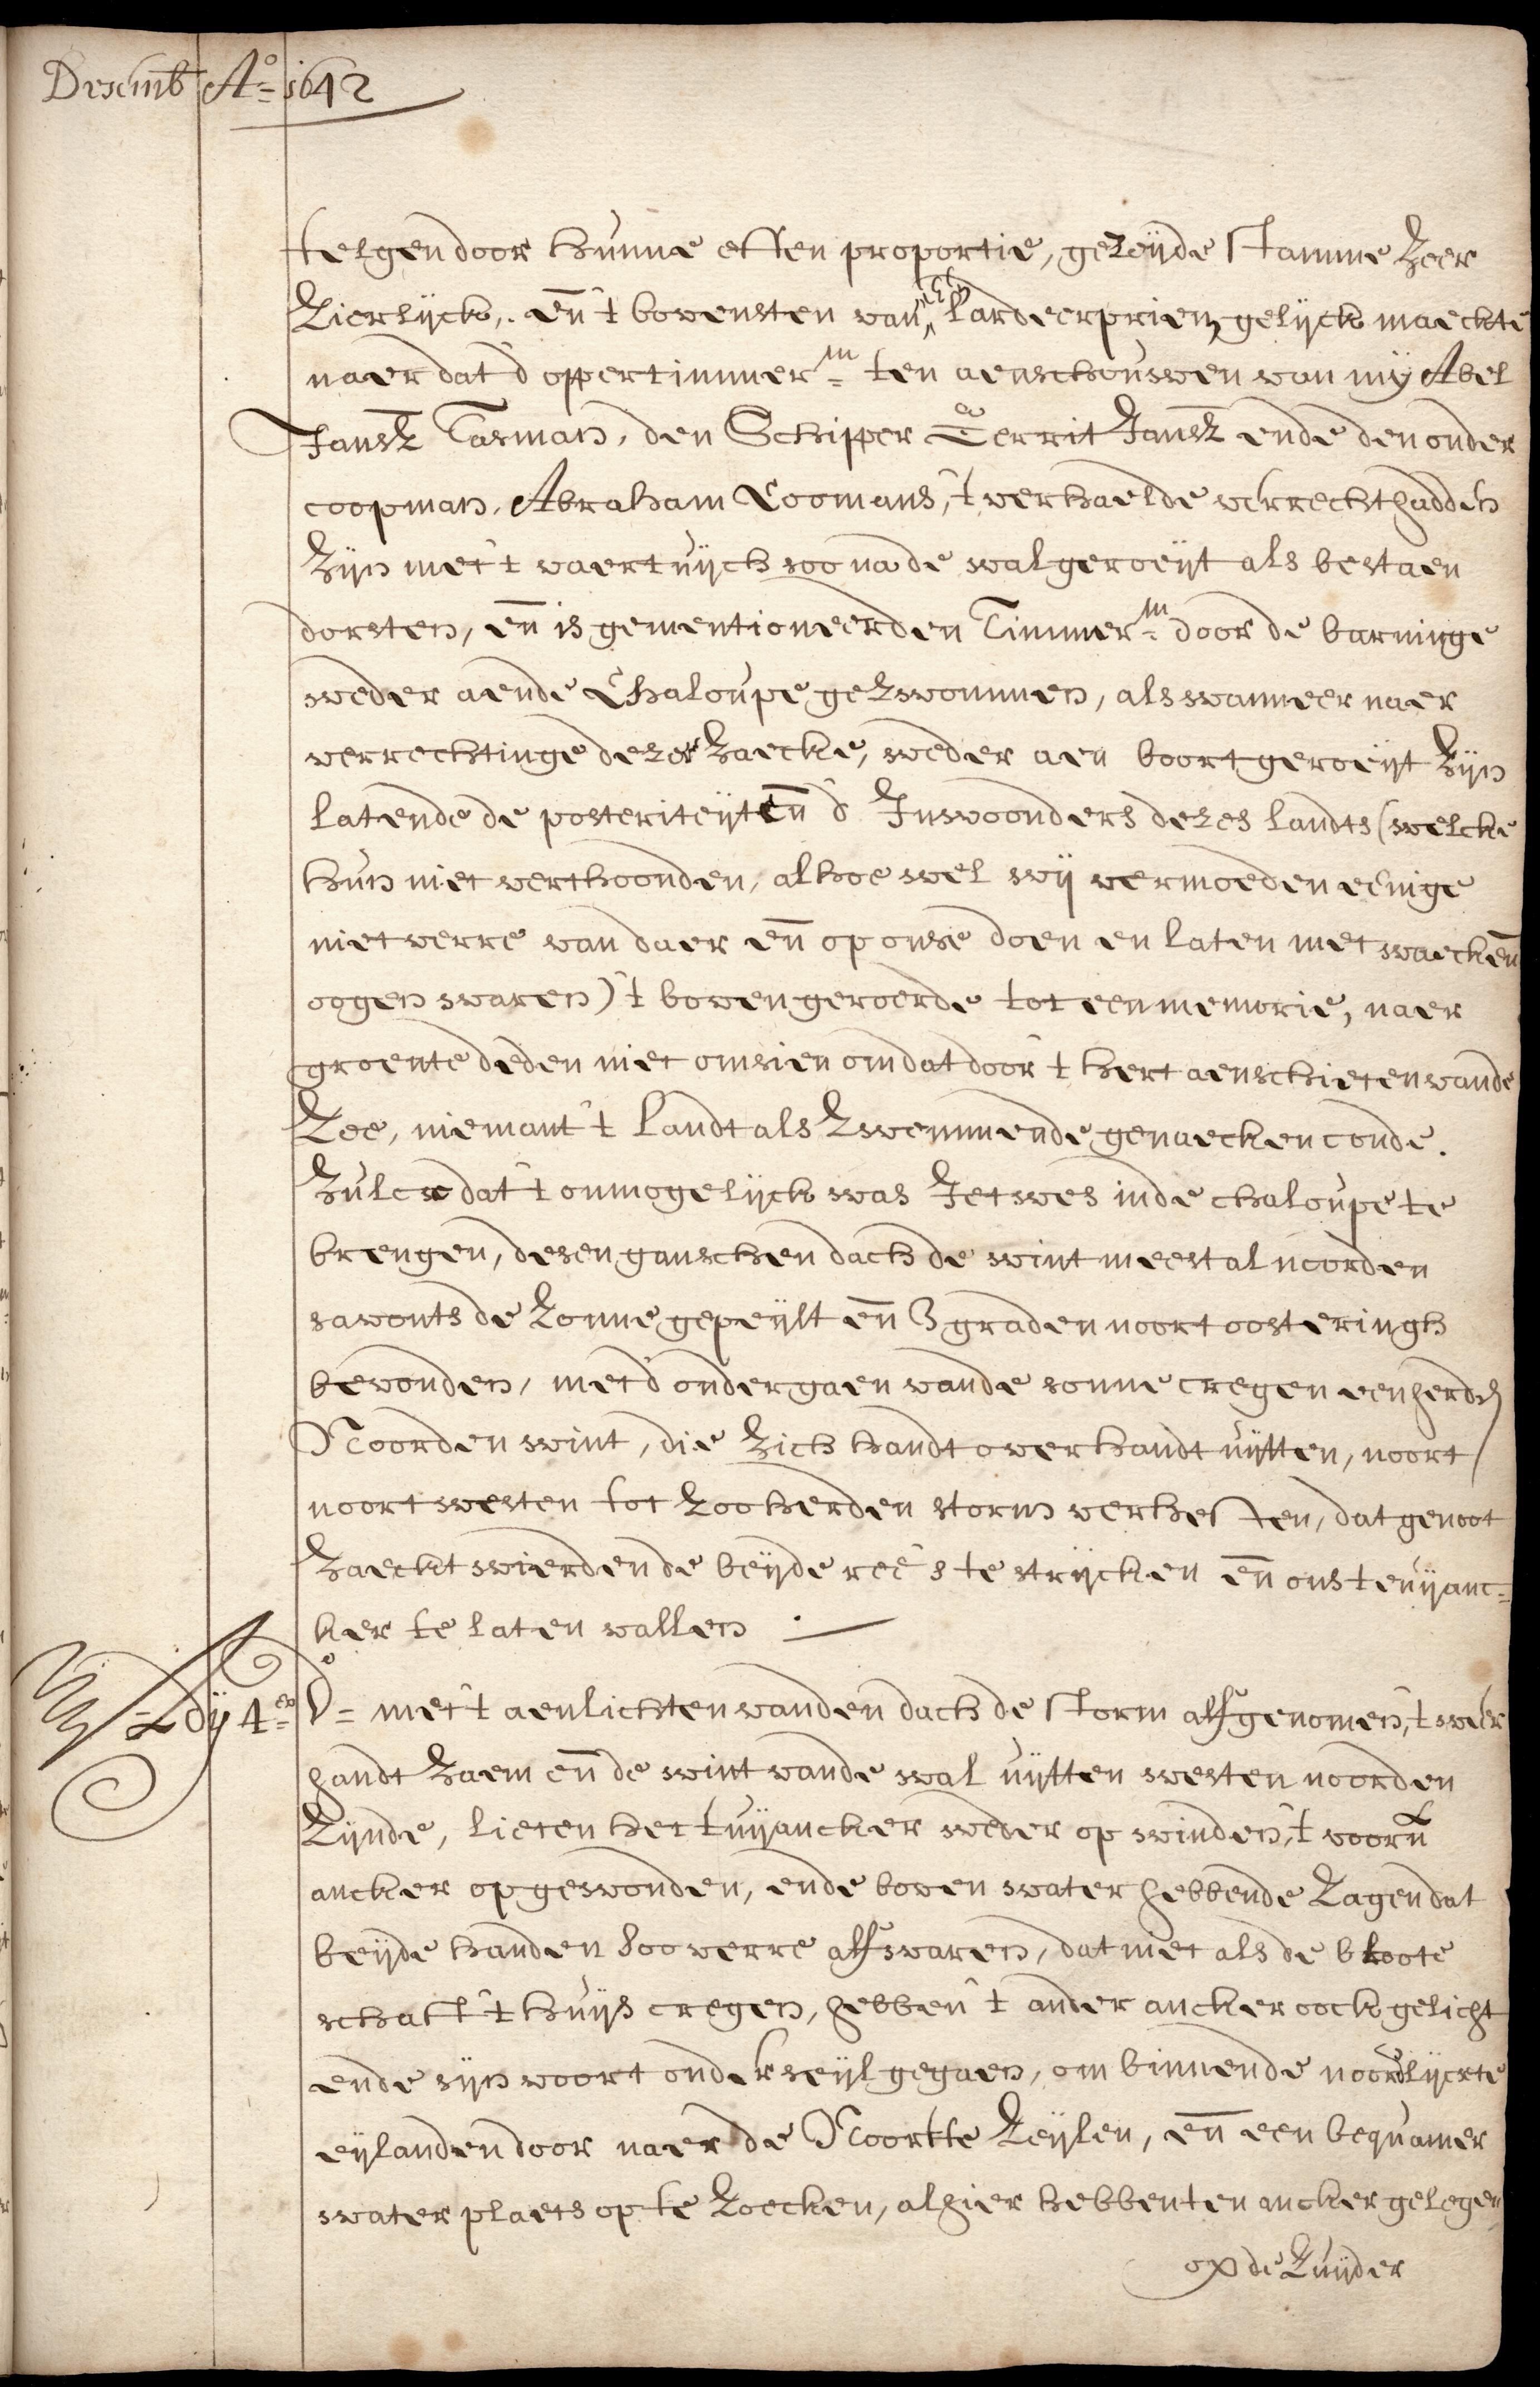 Desemb Aº 1642
telgen door hunne effen proportie, gezeijde stamme zeer
Zierlijck, en̄ 't bovensten van een lardeerpriem gelijck maeckte
naer dat d' oppertimmerm ten aenschouwen van mij Abel
Jansz Tasman, den Schipper Gerrit Jansz ende den onder
coopman Abraham Coomans, 't verhaelde verrecht hadden
Zijn met 't vaertuijch soo na de wal geroeijt als bestaen
dorsten, en̄ is gementioneerden Timmerm door de barninge
weder aende Chaloupe gezwommen, als wanneer naer
verrechtinge dezer Zaecke, weder aen boort geroeijt Zijn
latende de posteriteijt en̄ d' Inwoonders dezes landts (welcke
hun niet verthoonden, alhoewel wij vermoeden eenige
niet verre van daer en̄ op onse doen en laten met waecken̄
oogen waren) 't bovengeroerde tot een memorie, naer
groente deden niet omsien om dat door 't hert aenschieten vande
Zee, niemant 't landt als Zwemmende genaecken conde.
Zulcx dat 't onmogelijck was Ietwes inde chaloupe te
brengen, desen ganschen dach de wint meestal noorden
savonts de Zonne gepeijlt en̄ 3 graden noortoosteringh
bevonden, met d' ondergaen vande sonne cregen een herdn̄
Noorden wint, die Zich handt over handt uijtten, noort
noortwesten tot Zoo herden storm verheften, dat genoot
Zaeckt wierden de beijde ree's te strijcken en̄ ons tuijanc=
ker te laten vallen .—
Ady 4en dº = met 't aenlichten vanden dach de storm affgenomen, 't weer
handt Zaem en̄ de wint vande wal uijtten westen noorden
Zijnde, lieten het tuijancker weder op winden, 't voorn̄
ancker opgewonden, ende boven water hebbende Zagen dat
beijde handen soo verre aff waren, dat niet als de bloote
schaft 't huijs cregen, hebben 't ander ancker oock gelicht
ende sijn voort onder seijl gegaen, om binnende noordlijcxte
eijlanden door naer de Noort te Zeijlen, en̄ een bequamer
waterplaets op te Zoecken, alhier hebben ten ancker gelegen
op de Zuijder